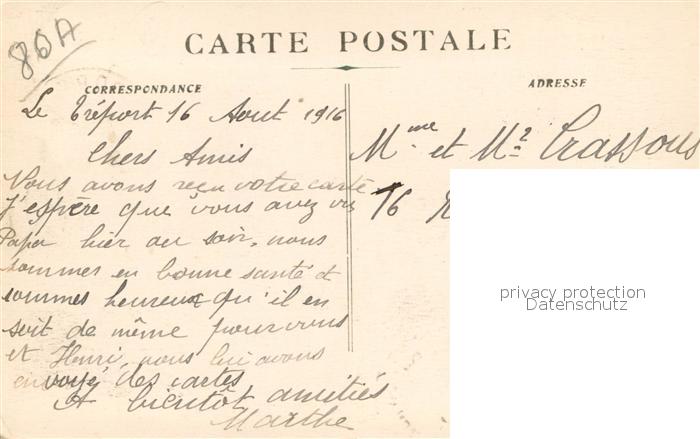 80A
CARTE POSTALE
CORRESPONDANCE
ADRESSE
Le Tréport 16 Aout 1916
Chers Amis
Vous avons reçu votre carte
J'espère que vous avez vu
Papa hier au soir, nous
sommes en bonne santé et
sommes heureux qu'il en
soit de même pour vous
et Henri, nous lui avons
envoyé des cartes
A bientôt amitiés
Marthe
Mme et Mr Crassous
16
privacy protection
Datenschutz